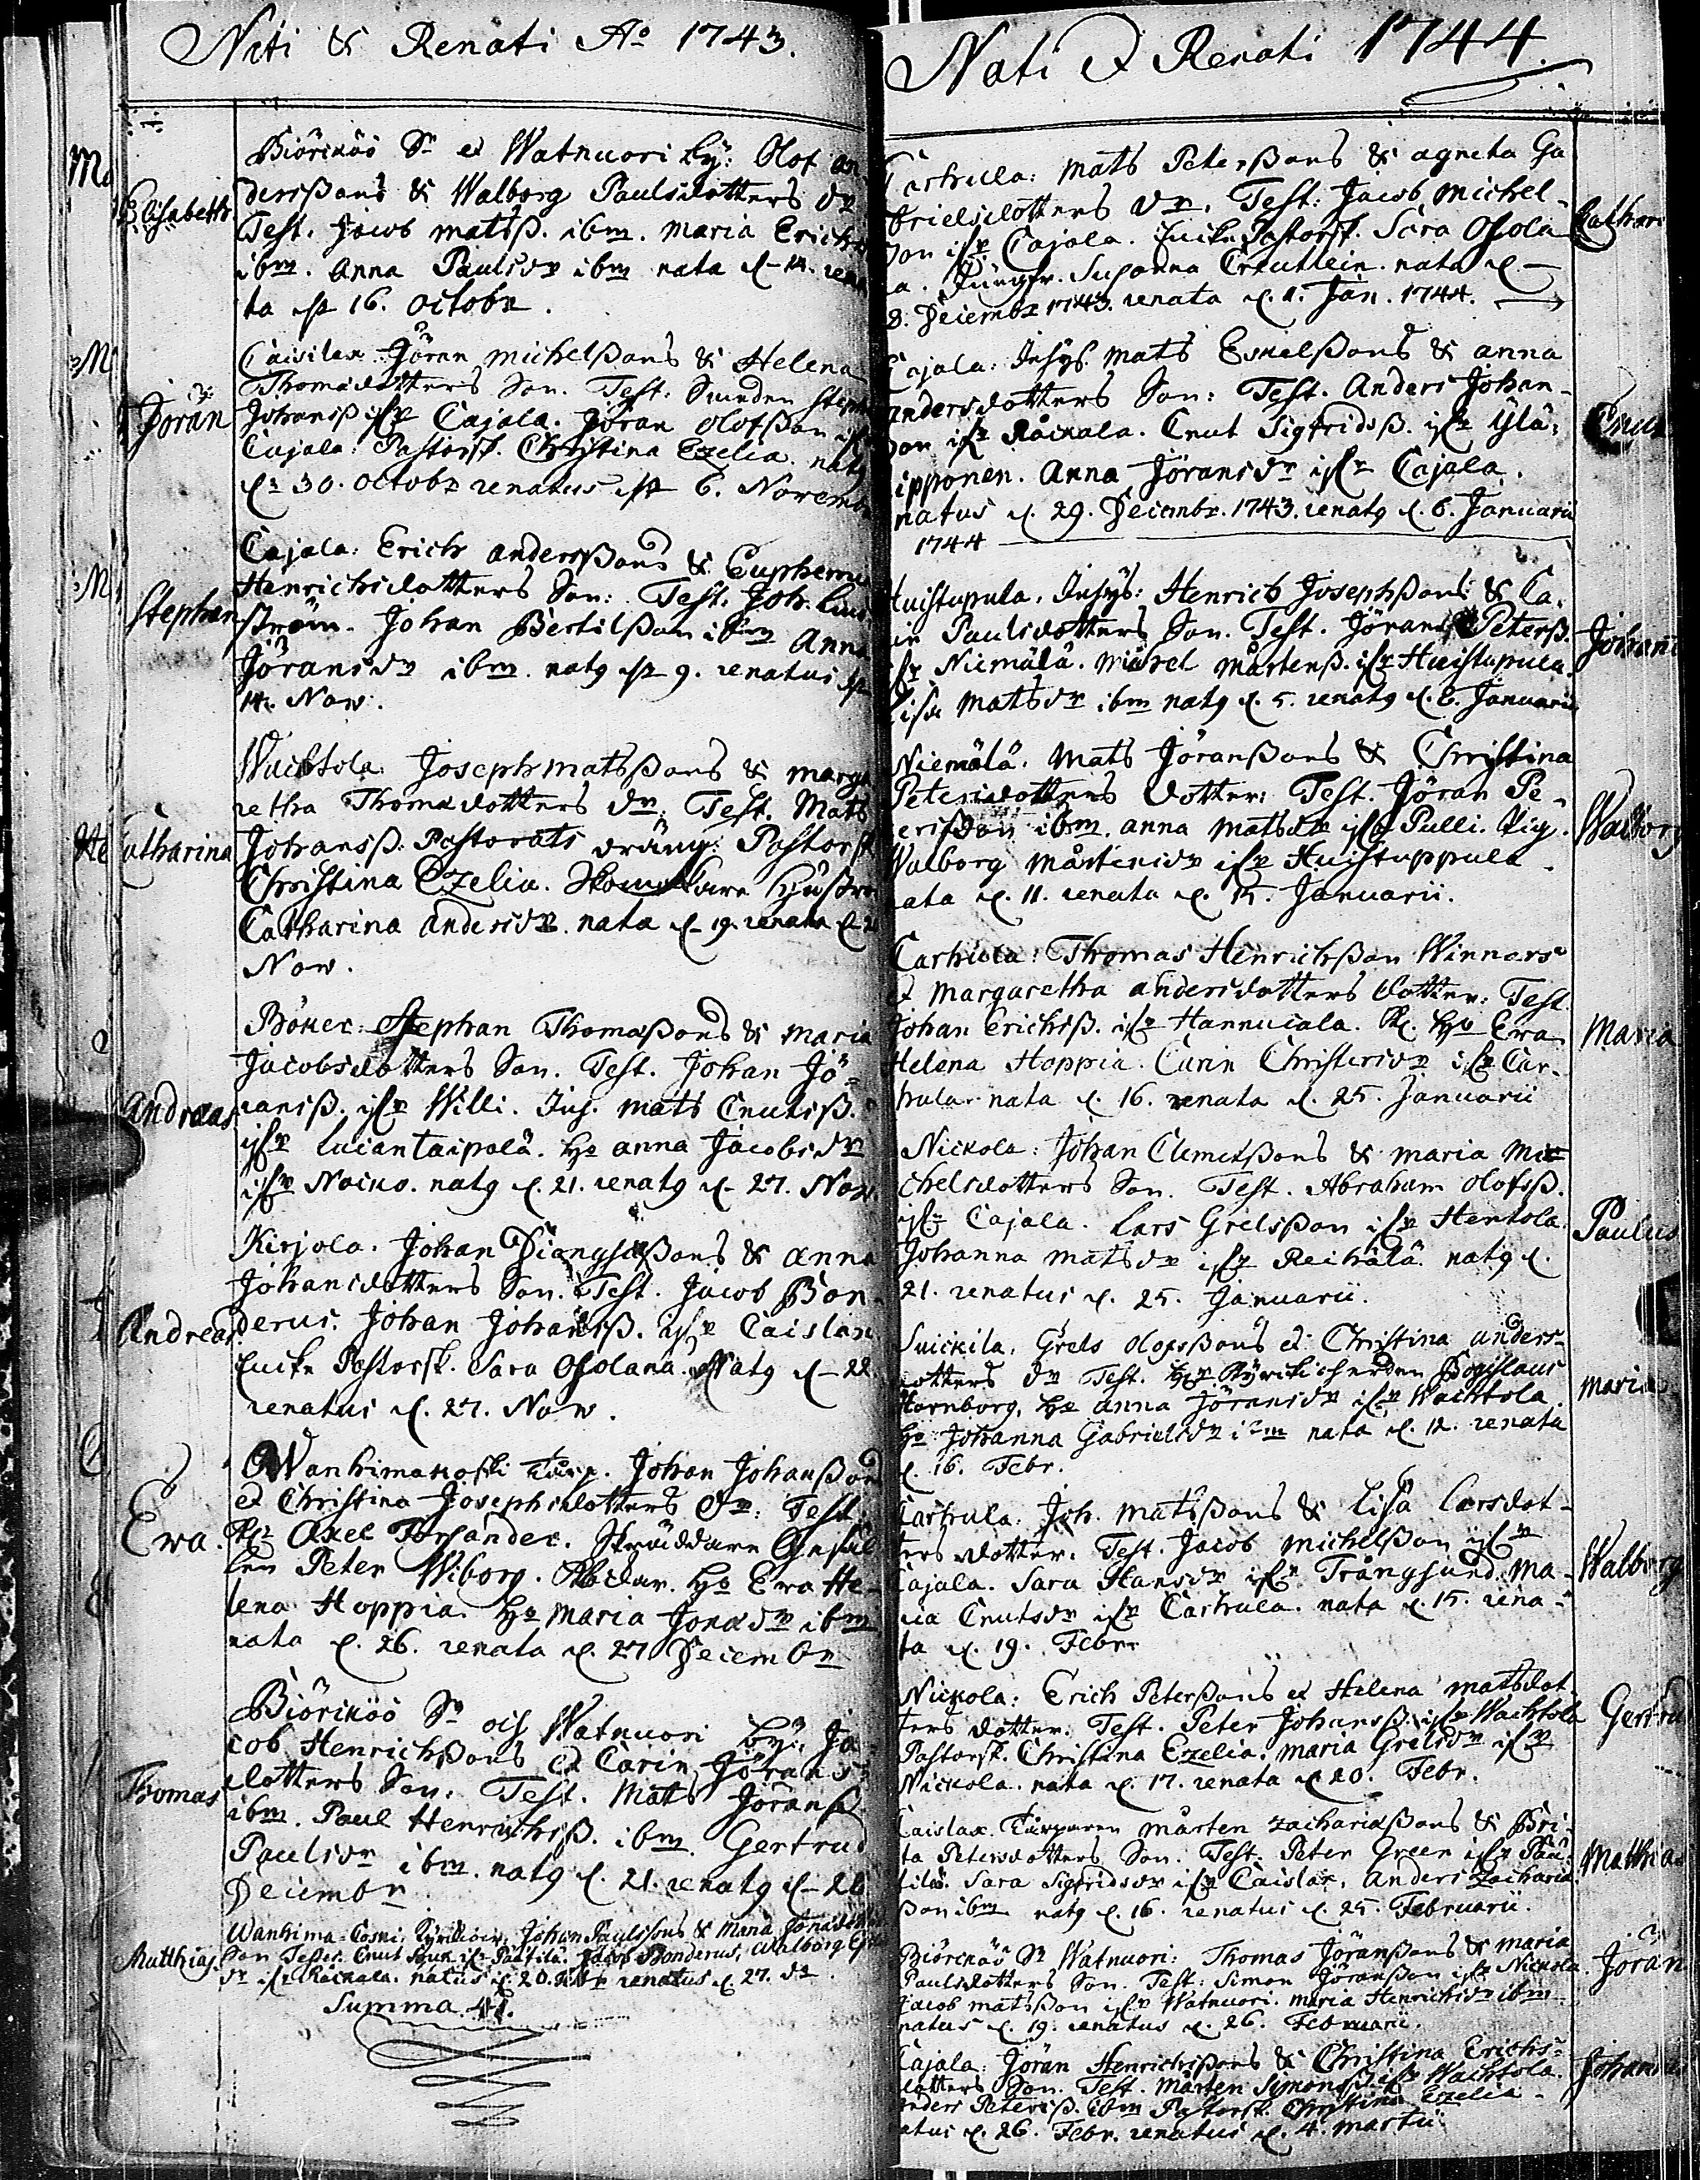 Nati & Renati Ao 1743.
Elisabeth
Biörköö Sn et Watnuori by: Olof An
derssons & Walborg Paulsdotters dr
Test. Jacob matsß. ibm. Maria Erichs
ibm. Anna Paulsdr ibm nata d. 14. rena
ta d. 16. Octobr.
Jöran
Caisilax Jöran michelßons & Helena
Thomædotters Son. Test. Steph
Johansß ifr Cajala. Jöran Olofßon ifr
Cajala. Pastorsk. Christina Ezelia. natg
d. 30. Octobr renatus d. 6. Novemb
Stephan
Cajala: Erich anderßons & Euphemia
Henrichsdotters Son: Test. Joh. Lind
ström. Johan Bertilßon ibm Anna
Jöransdr ibm. natg d. 9. renatus d.
14. Nov.
Catharina
Wachtola Joseph matsßons & marga
retha Thomædotters dr. Test. Mats
Johansß. Pastorats dräng: Pastorsk
Christina Ezelia. Skomakare hustro
Catharina andersdr. nata d. 19. renata d. 2
Nov.
Andreas
Stephan Thomaßons & maria
Jacobsdotters Son. Test. Johan Jö-
ransß. ifr Willi. Inh. mats Cnutsß.
ifr Luciantaipalä. Ho anna Jacobsdr
ifr natg d. 21. renatg d. 27. Nov
Andreas
Kirjola. Johan Dionysißons & anna
Johansdotters Son. Test. Jacob Bon-
derus. Johan Johansß. ifr Caislax
Pastorsk. Sara Osolana. Natg d. 22
renatus d. 27. Nov.
Ewa.
Wanhimakoski Torp. Johan Johanßons
et Christina Josephsdotters dr: Test.
Axel Forsander. Skräddare Gesäl
len Peter Wiborg. Ho Ewa He-
lena Hoppia. Ho Maria Jonædr ibm
nata d. 26. renata d. 27 Decembr
Thomas
Biörköö Sn och Watnuori by: Ja
cob Henrichßons et Carin Jörans-
dotters Son. Test. Mats Jöransß
ibm. Paul Henrichsß. ibm. Gertrud
Paulsdr ibm. natg d. 21. renatg d. 26
Decembr
Matthias.
Wanhima-Coski Johan Paulsßons & Maria Jonædott
Son Testes. Cnut ifr Pautila. Jacob Bonderus, Walborg
dr ifr Råckala. natus d. 20. renatus d. 27. dr
Summa 41.
Nati & Renati 1744.
Carhula: Mats Peterßons & agneta Ga
brielsdotters dr. Test. Jacob michel-
son ifr Cajala. Pastorsk. Sara Osola
na. Jungfr. Susanna Creutlein. nata d.
8. Decembr 1743. renata d. 1. Jan. 1744.
Cathari
Cajala: Inhys. Mats Eskelßons & anna
andersdotters Son: Test. Anders Johan-
son ifr Råckala. Cnut Sigfridsß. ifr Ylä-
ipponen. Anna Jöransdr ifr Cajala.
natus d. 29. Decembr. 1743. renatg d. 6. Januarii
1744
Cnut
Huistupula. Inhys: Henrich Josephßons & Ca-
rin Paulsdotters Son. Test. Jöran Petersß.
ifr Niemälä. Michel Mårtensß. ifr Huistupula.
Lisa Matsdr ibm natg d. 5. renatg d. 6. Januarii
Johann
Niemälä. Mats Jöranßons & Christina
Petersdotters dotter: Test. Jöran Pe-
terßon ibm. anna Matsdr ifr Pulli. Pig.
Walborg Mårtensdr ifr Huistuppula
nata d. 11. renata d. 15. Januarii.
Walborg
Carhula: Thomas Henrichßon Winnars
& Margaretha andersdotters dotter: Test.
Johan Erichsß. ifr Hannucala. Ho Ewa
Helena Hoppia. Carin Christersdr ifr Car-
hula nata d. 16. renata d. 25. Januarii
Maria
Nickola: Johan Clemetßons & maria Mi-
chelsdotters Son. Test. Abraham Olofsß.
ifr Cajala. Lars Grelsßon ifr Hentola.
Johanna Matsdr ifr Reihälä. natg d.
21. renatus d. 25. Januarii.
Paulus
Suickila. Grels Olofsßons et Christina anders-
dotters dr Test. Kyrckioherden Bogislaus
Hornborg. Ho anna Jöransdr ifr Wachtola.
Ho Johanna Gabrielsdr ibm nata d. 12. renata
d. 16. Febr.
Maria
Carhula. Joh. Matsßons & Lisa Larsdot-
ters dotter. Test. Jacob Michelßon ifr
Cajala. Sara Hansdr ifr Trångsund. Ma-
ria Cnutsdr ifr Carhula. nata d. 15. rena-
ta d. 19. Febr.
Walborg
Nickola: Erich Peterßons et Helena Matsdot-
ters dotter. Test. Peter Johansß. ifr Wachtola
Pastorsk. Christina Ezelia. Maria Grelsdr ifr
Nickola. nata d. 17. renata d. 20. Febr.
Gertrud
Caislax. Torparen Mårten Zachariæßons & Bri-
ta Petersdotters Son. Test. Peter Green ifr Pau-
tila. Sara Sigfridsdr ifr Caislax. Anders Zachariæ
ßon ibm natg d. 16. renatus d. 25. Februarii.
Matthias
Biörckös Sn Watnuori: Thomas Jöranßons & maria
Paulsdotters Son. Test: Simon Jöranßon ifr Nickola.
Jacob matsßon ifr Watnuori. Maria Henrichsdr ibm
natus d. 19. renatus d. 26. Februarii.
Jöran
Cajala: Jöran Henrichßons & Christina Erichs-
dotters Son. Test. Mårten Simonsß. ifr Wachtola.
Anders Petersß. ibm Pastorsk. Christina Ezelia
natus d. 26. Febr. renatus d. 4. Martii
Johanna